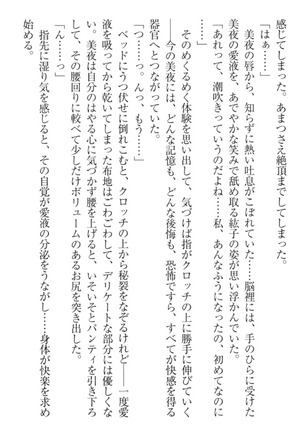 感じてしまった。あまつさえ絶頂までしてしまった。
「はぁ……」
美夜の唇から、知らずに熱い吐息がこぼれていた……脳裡には、手のひらに受けた
美夜の愛液を、あでやかな笑みで舐め取る紘子の姿が思い浮かんでいた。
「あれって、潮吹きっていうのだよね……私、あんなふうになったの、初めてなのに」
そのめくるめく体験を思い出して、気づけば指がクロッチの上に勝手に伸びていく
――今の美夜には、どんな記憶も、どんな後悔も、恐怖ですら、すべてが快感を得る
器官へとつながっていた。
「つ……っ。んっ、もう……」
ベッドにうつ伏せに倒れこむと、クロッチの上から秘裂をなぞるけれど――一度愛
液を吸ってから乾いてしまった布地はごわごわして、デリケートな部分には優しくな
い。美夜は自分のはやる心に気づかず腰を上げると、いそいそとパンティを引き下ろ
して、その腰回りに較べて少しだけボリュームのあるお尻を突き出した。
「ん……っ」
指先に湿り気を感じると、その自覚が愛液の分泌をうながし……身体が快楽を求め
始める。